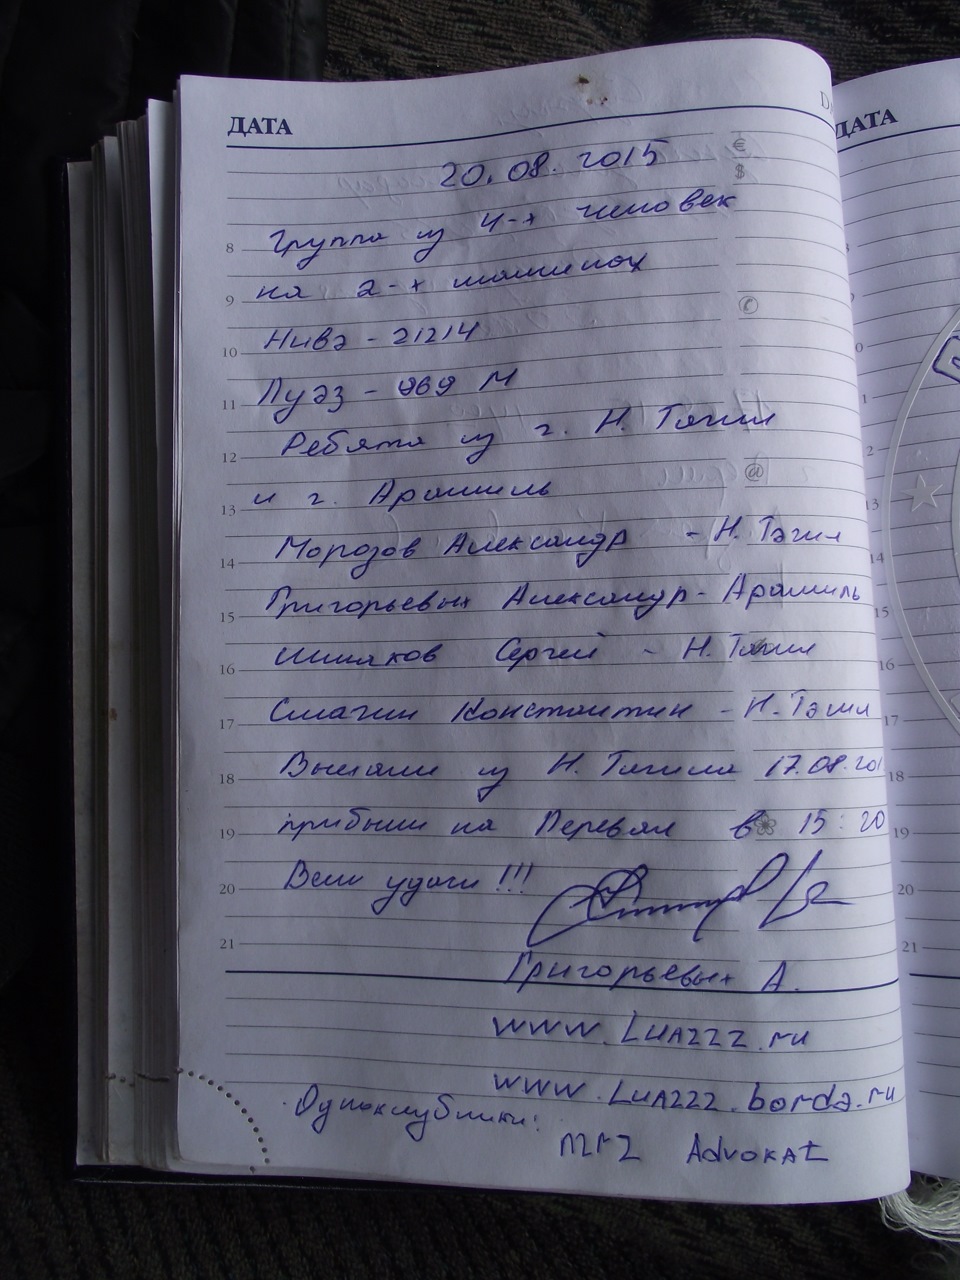 ДАТА
20.08.2015
Группа из 4-х человек
8
на 2-х машинах
9
Нива - 21214
10
Луаз - 969 М
11
Ребята из г. Н. Тагил
12
и г. Арамиль
13
Морозов Александр - Н. Тагил
14
Григорьевых Александр - Арамиль
15
Сергей - Н. Тагил
16
Смагин Константин - Н. Тагил
17
Выехали из Н. Тагила 17.08.201
18
прибыли на Перевал в 15:20
19
Всем удачи!!!
20
21
Григорьевых А.
www.LUAZZZ.ru
www.LUAZZZ.borda.ru
Одноклубники:
Advokat
ДАТА